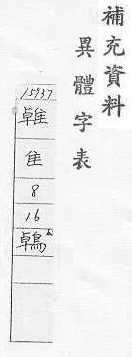 補充資料
異體字表
15937
隹
8
16
鵫